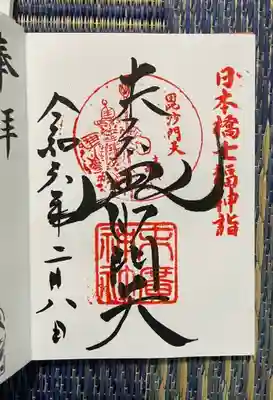 日本橋七福神詣
毘沙門天
末廣
毘沙門天
令和六年二月八日
末廣神社
奉拝